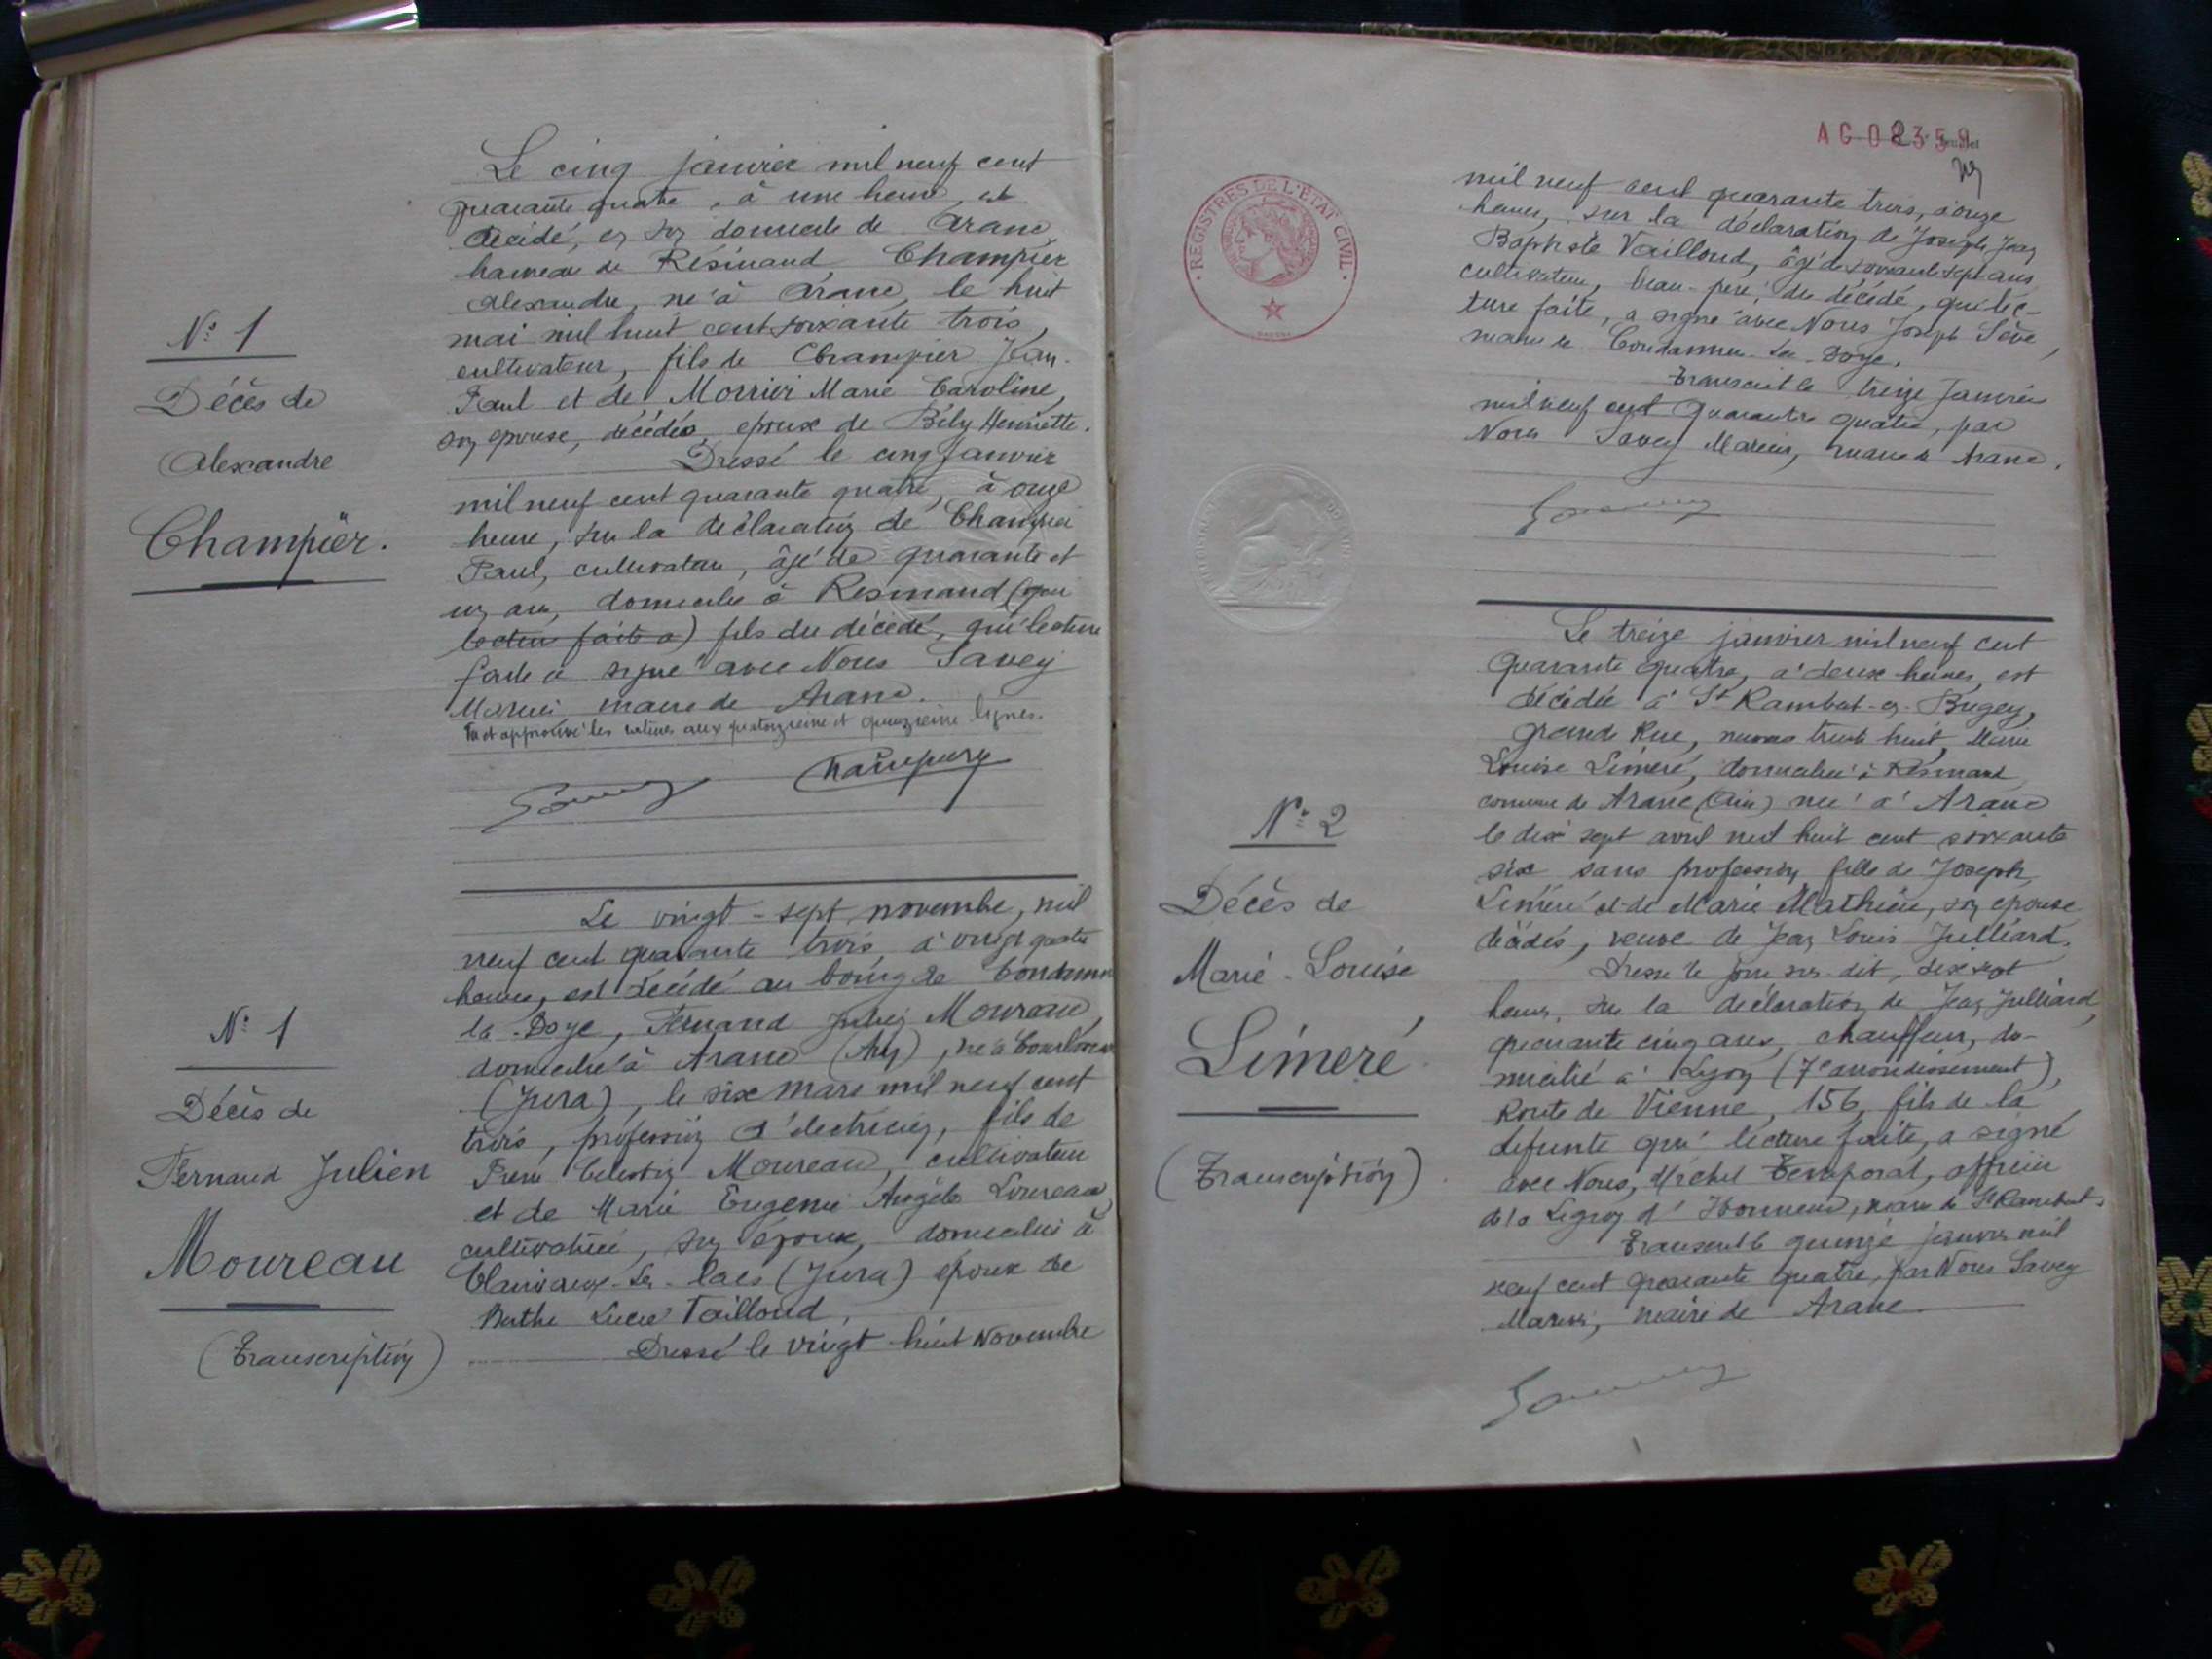 N° 1
Décès de
Alexandre
Champier.
Le cinq janvier mil neuf cent
quarante quatre, à une heure, est
décédé, en son domicile de Aranc
hameau de Résinand, Champier
Alexandre, né à Aranc, le huit
mai mil huit cent soixante trois,
cultivateur, fils de Champier Jean-
Paul et de Morrier Marie Caroline,
son épouse, décédés, époux de Bély Henriette.
Dressé le cinq Janvier
mil neuf cent quarante quatre, à onze
heure, sur la déclaration de Champier
Paul, cultivateur, âgé de quarante et
un ans, domicilié à Résinand (qui
lecture faite a) fils du décédé, qui lecture
faite a signé avec Nous Savey
Marius maire de Aranc.
Vu et approuvé les ratures aux quatorzième et quinzième lignes.
N° 1
Décès de
Fernand Julien
Moureau
(Transcription)
Le vingt-sept novembre, mil
neuf cent quarante trois, à vingt quatre
heures, est décédé au bourg de Condamine
la-Doye, Fernand Julien Moureau,
domicilié à Aranc (Ain), né à
(Jura), le six mars mil neuf cent
trois, profession d'électricien, fils de
Célestin Moureau, cultivateur
et de Marie Eugénie Angèle
cultivatrice, son épouse, domiciliés à
Clairvaux-les-lacs (Jura) époux de
Berthe Lucie Tailloud,
Dressé le vingt huit Novembre
AG 08359
mil neuf cent quarante trois, à onze
heures, sur la déclaration de Joseph Jean
Baptiste Vailloud, âgé de soixante sept ans
cultivateur, beau-père, du décédé, qui lec-
ture faite, a signé avec Nous Joseph Sève,
maire de Condamine-la-Doye.
Transcrit le treize Janvier
mil neuf cent quarante quatre, par
Nous Savey Marius, maire de Aranc.
REGISTRES DE L'ETAT CIVIL
N° 2
Décès de
Marie-Louise
Liméré
(Transcription)
Le treize janvier mil neuf cent
quarante quatre, à deux heures, est
décédée à St Rambert-en-Bugey,
grande Rue, numéro trente huit, Marie
Louise Liméré, domiciliée à Résinand
commune de Aranc (Ain) née à Aranc
le dix sept avril mil huit cent soixante
six sans profession, fille de Joseph
Liméré et de Marie Mathieu, son épouse
décédés, veuve de Jean Louis Julliard.
Dressé le jour sus-dit, dix sept
heures, sur la déclaration de Jean Julliard,
quarante cinq ans, chauffeur, do-
micilié à Lyon (7e arrondissement),
Route de Vienne, 156, fils de la
défunte qui lecture faite, a signé
avec Nous, Michel Temporal, officier
de la Légion d'Honneur, maire de St Rambert.
Transcrit le quinze janvier mil
neuf cent quarante quatre, par Nous Savey
Marius, maire de Aranc